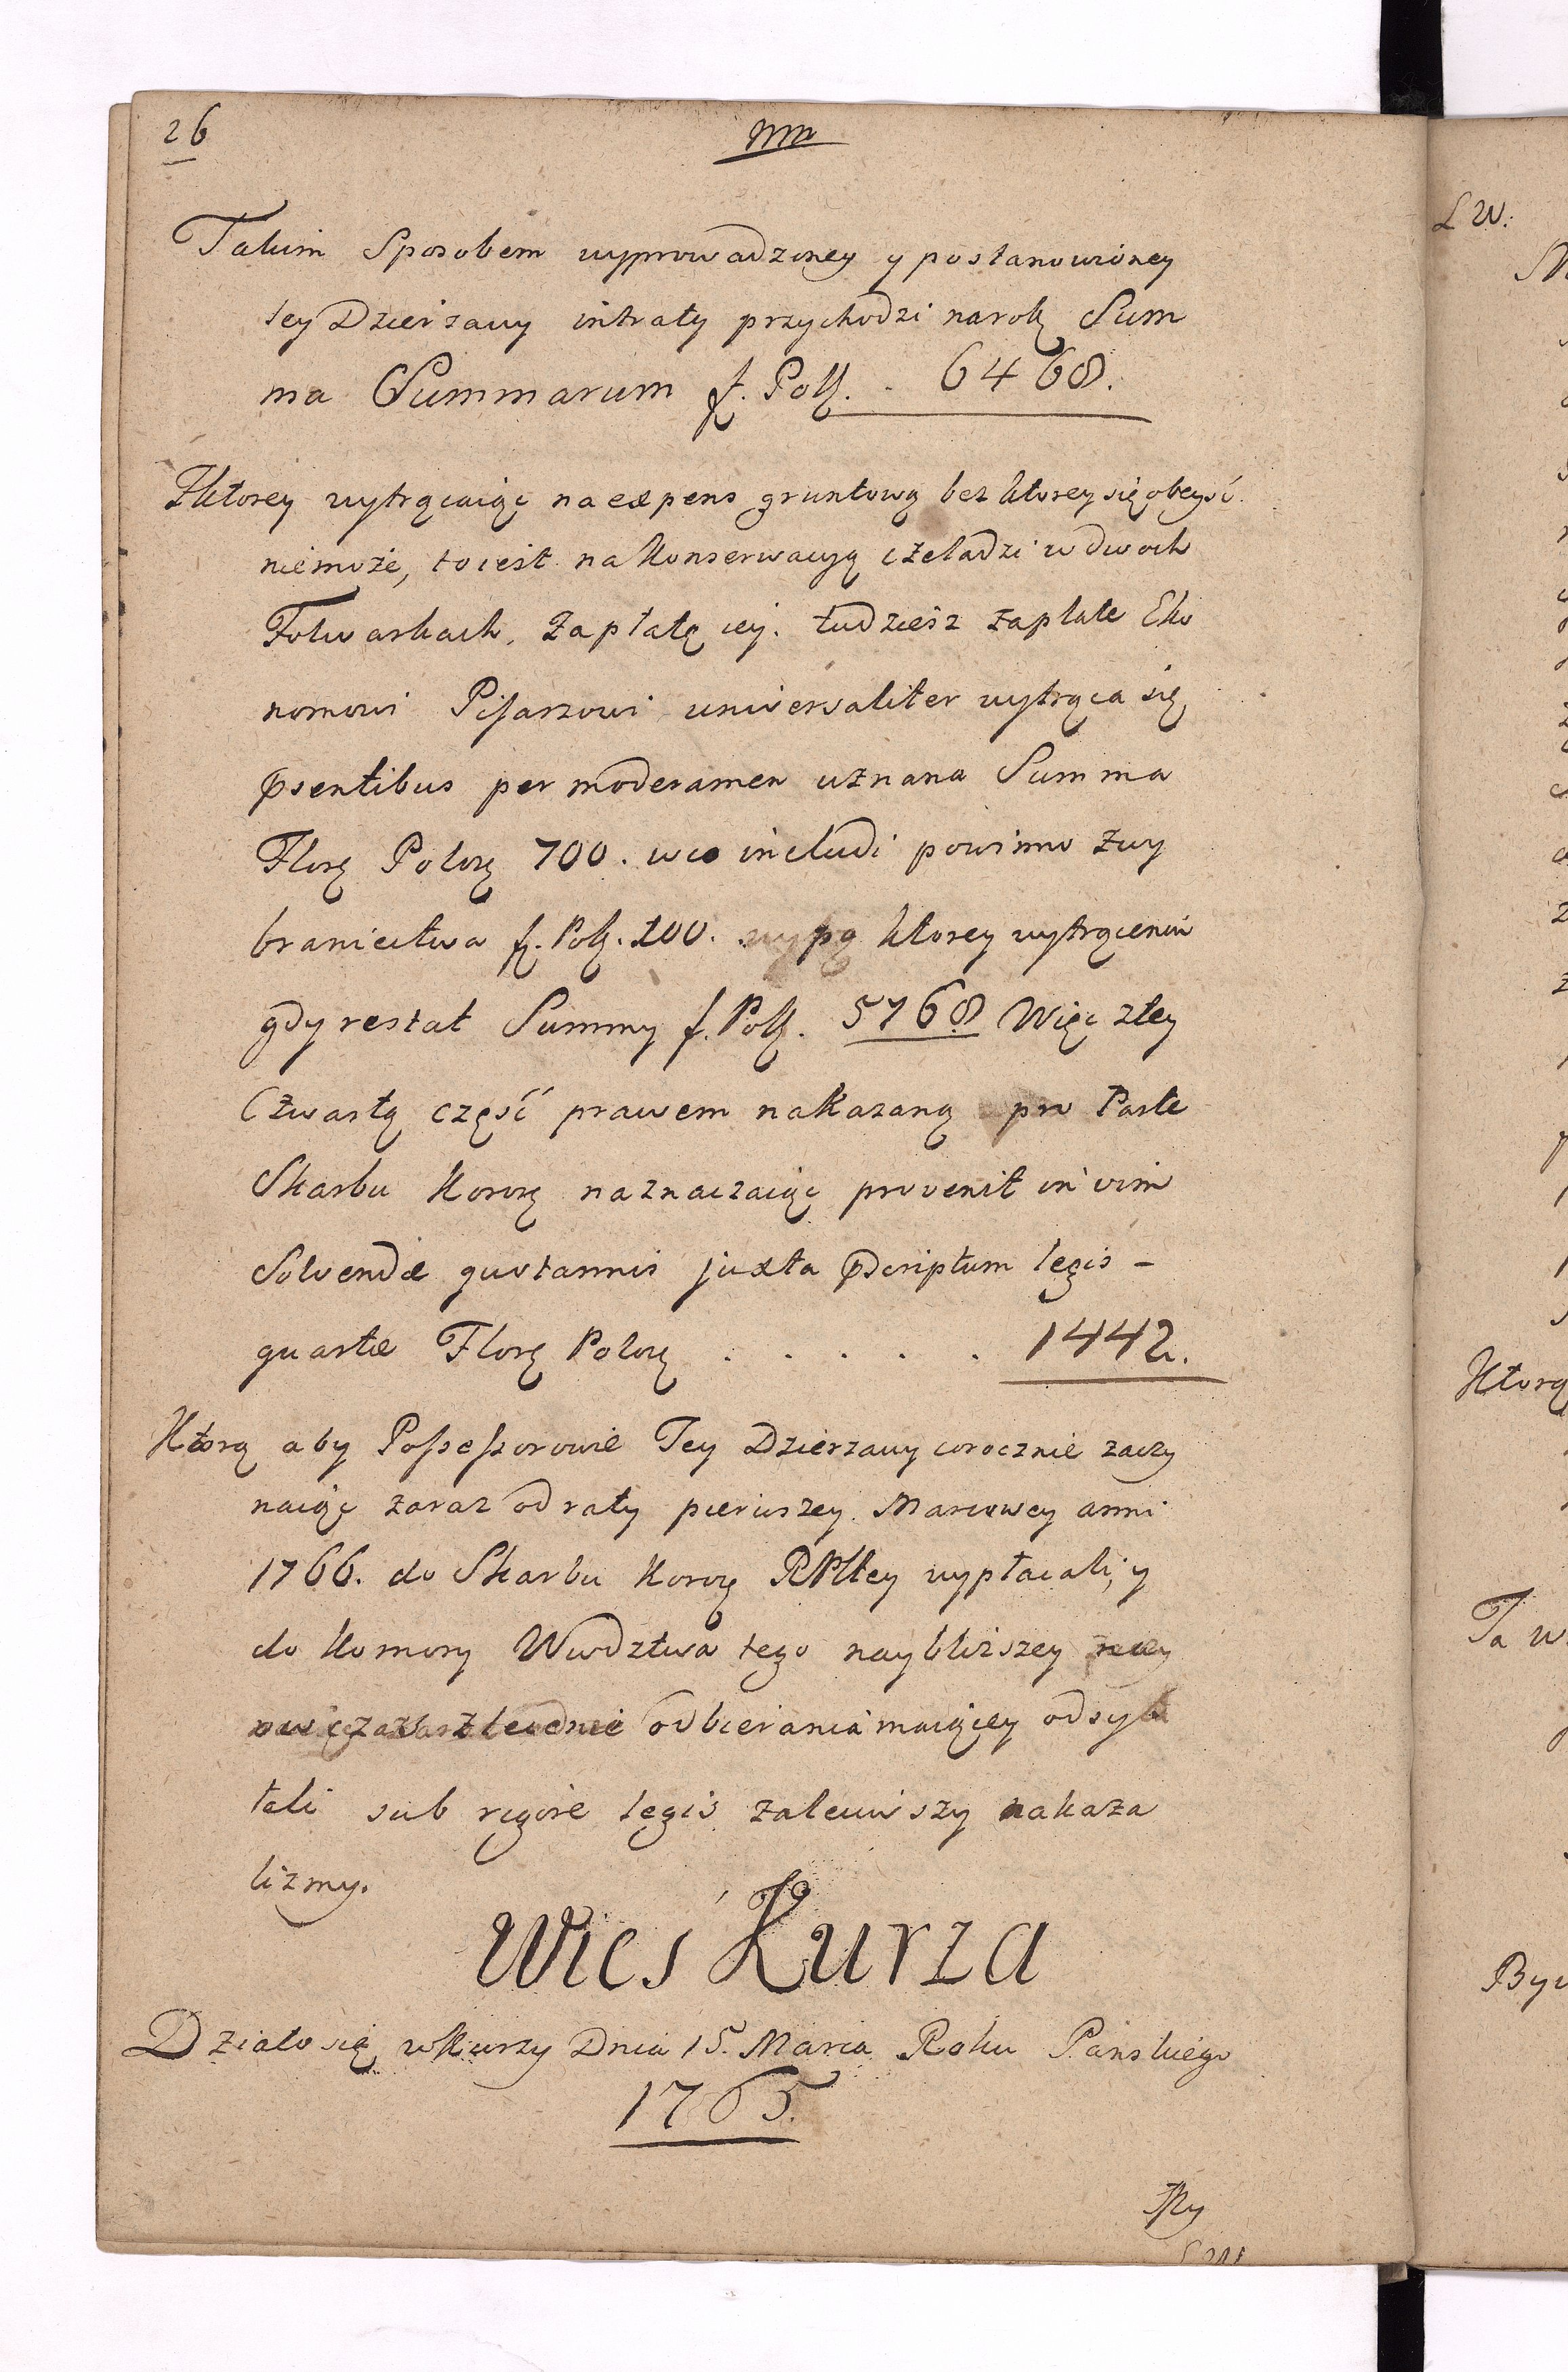 26
Takim Sposobem wyprowadzoney y postanowioney
tey Dzierzawy intraty przychodzi na rok Sum
ma Summarum f. Pols. 6468.
Zktorey wytrącaiąc na expens gruntową bez ktorey się obeyść
niemoże, to iest na konserwacyą czeladzi w dwoch
Folwarkach, Zapłatę iey. tudziesz zapłate Eko
nomowi Pisarzowi universaliter wytrąca się
psentibus per moderamen uznana Summa
Flor. Polor. 700. w co includi powinno zwy
braniectwa f. Pols. 100. ktorey wytrąceniu
gdy restat Summy f. Pols. 5768 Więc ztey
Czwartą część prawem nakazaną pro Parte
Skarbu Koror. naznaczaiąc provenit in vim
Solvendæ quotannis juxta pscriptum legis -
quartæ Flor. Polor. . . . . . 1442.
Ktorą aby Possessorowie Tey Dzierzawy corocznie zaczy
naiąc zaraz od raty pierwszey Marcowey anni
1766. do Skarbu Koror. RPltey wypłacali, y
do Komory Wwdztwa tego naybliższey
odbierania maiącey odsyła
tali sub rigore legis zaleciwszy nakaza
lizmy.
Wieś Kurza
Działo się w Kurzy Dnia 15. Marca Roku Pańskiego
1765.
L W.
Ktorą
Ta w